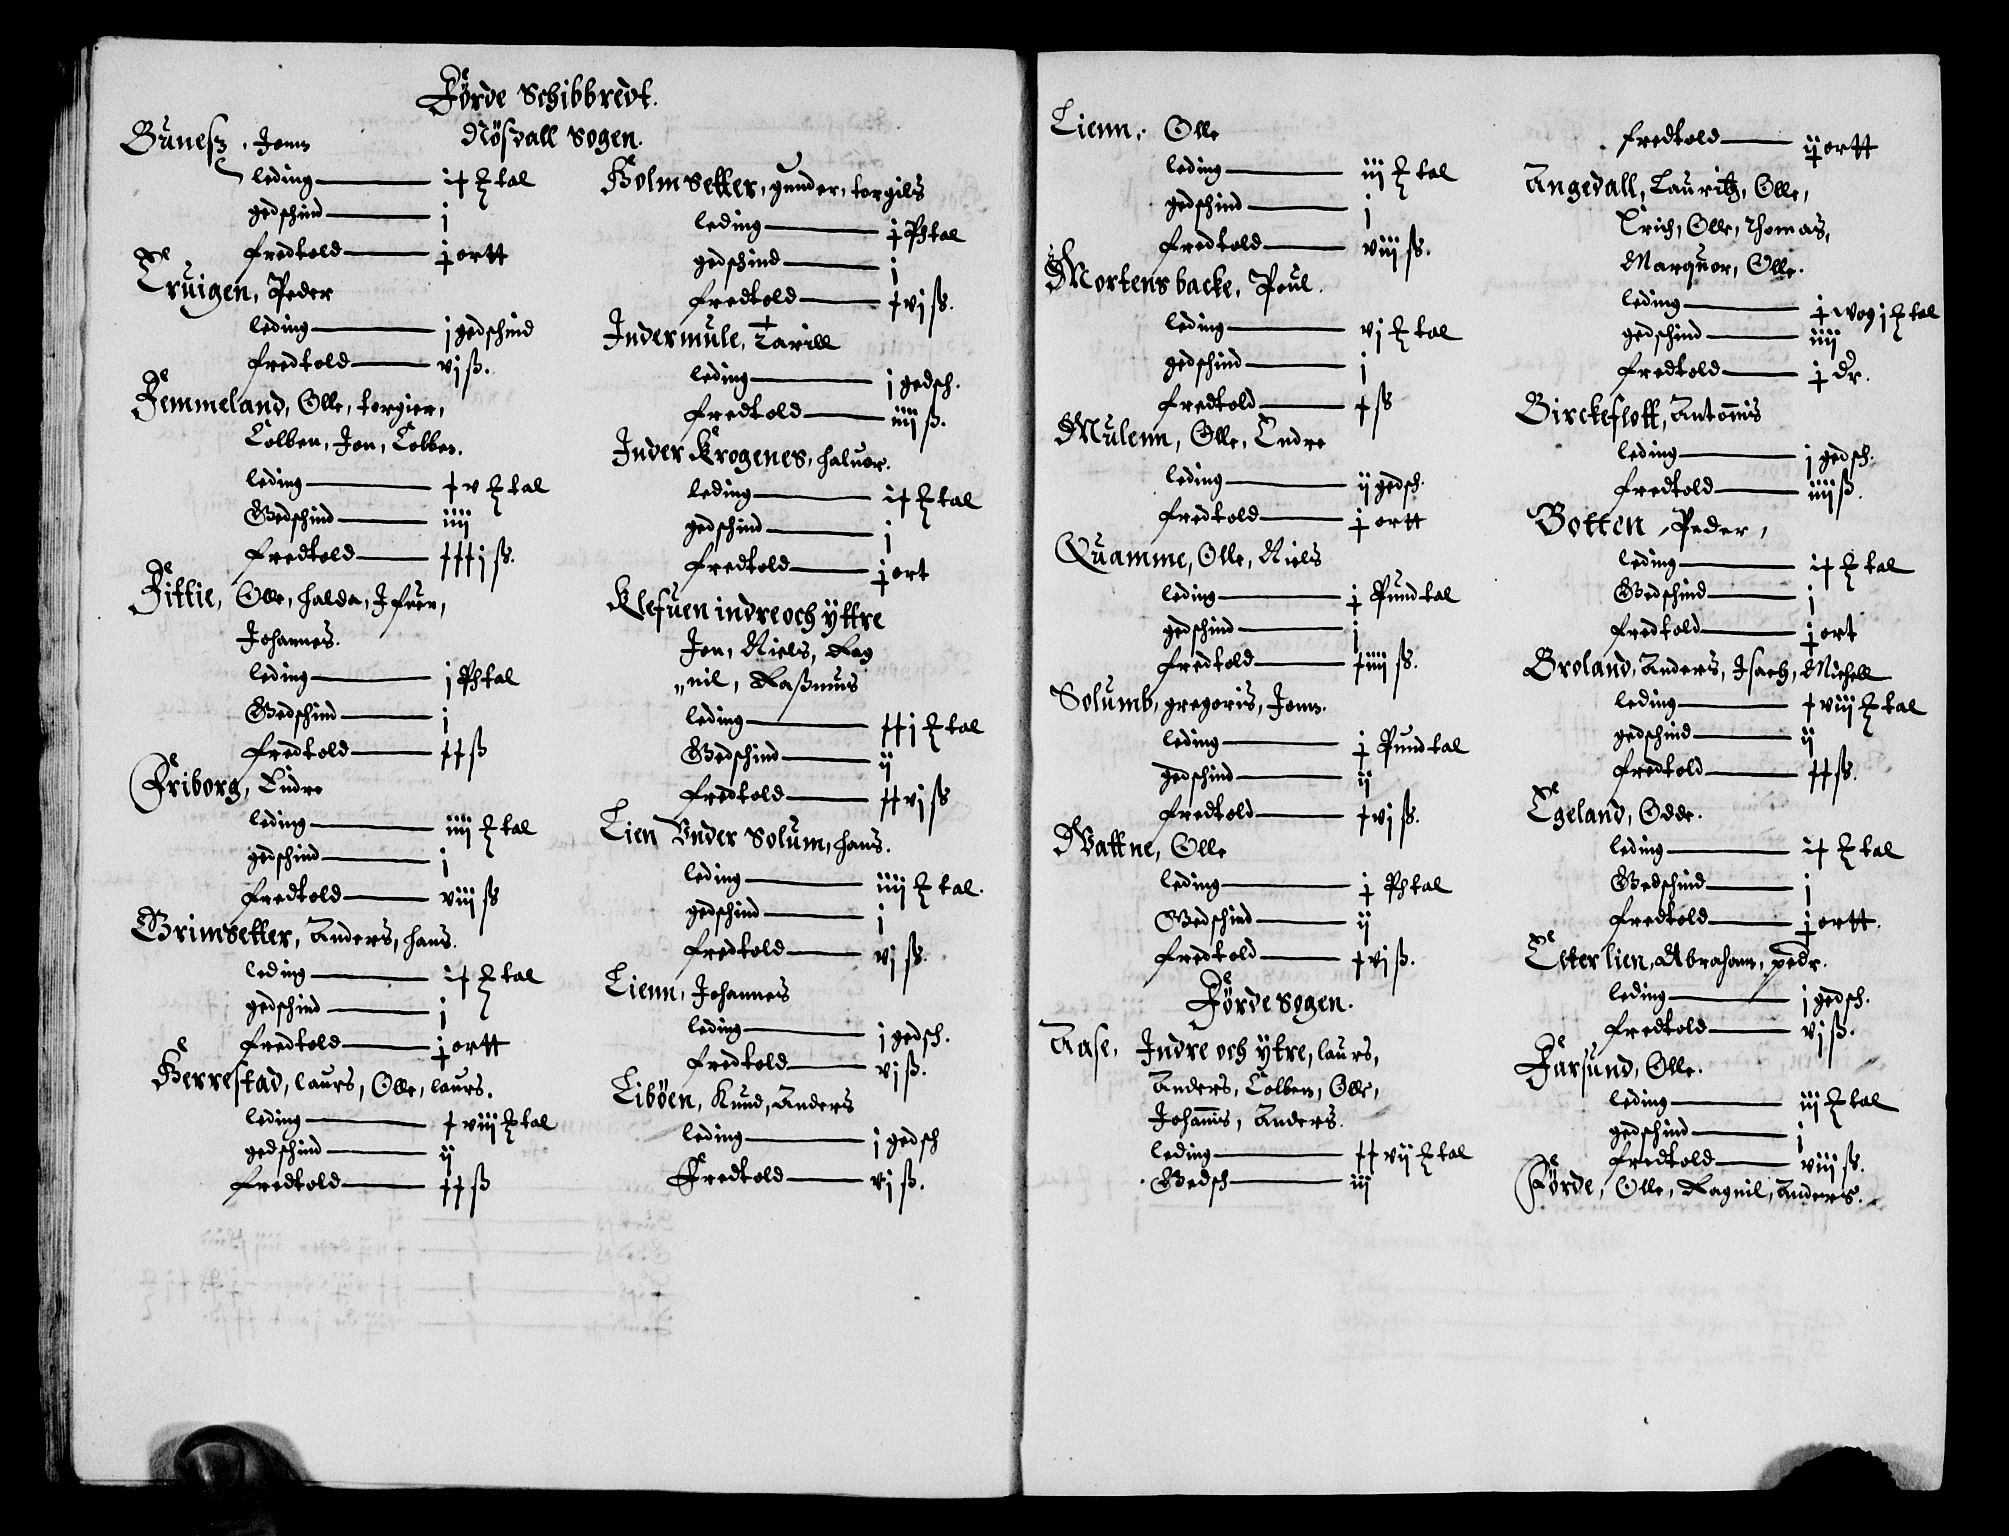 Förde Schibbredt.
Nösdall Sogen.
Bunes, Jonn
leding — i+ ℔ tal
gedschind — j
fredtold — j ortt
Eruigen, Peder
leding — j gedschind
fredtold — vj ß.
Femmeland, Olle, torgier,
Colben, Jon, Colben.
leding — + v ℔ tal
Gedschind — iiij
fredtold — +++j ß.
Fittie, Olle, halda, Ifuer,
Johannes.
leding — j Phtal
Gedschind — j
fredtold — ++ ß
Friborg, Endre
leding — iiij ℔ tal
gedschind — j
fredtold — viij ß
Grimsetter, Anders, hans.
leding — i+ ℔ tal
gedschind — j
fredtold — j ortt
Herrestad, laurs, Olle, laurs.
leding — + viij ℔ tal
gedschind — ij
fredtold — ++ ß
Holmsetter, gunder, torgils
leding — j Phtal
gedschind — j
fredtold — +vj ß.
Indermule, Tarill
leding — j gedsch.
fredtold — iiij ß.
Inder Krogenes, haluor.
leding — i+ ℔ tal
gedschind — j
fredtold — j ort
Klefuen indre och yttre
Jon, Niels, Rag
„nil, Raßmus
leding — ++j ℔ tal
Gedschind — ij
fredtold — ++vj ß
Lien Vnder Solum, hans.
leding — iiij ℔ tal.
gedschind — j
fredtold — vj ß.
Lienn, Johannes
leding — j gedsch.
fredtold — vj ß.
Liböen, Knud, Anders
leding — j gedsch
Fredtold — vj ß.
Lienn, Olle
leding — iij ℔ tal
gedschind — j
fredtold — viij ß.
Mortensbacke, Poul.
leding — vj ℔ tal
gedschind — j
fredtold — + ß
Mulenn, Olle, Endre
leding — ij gedsch.
fredtold — j ortt
Quamme, Olle, Niels
leding — j Pundtal
gedschind — j
fredtold — +iiij ß.
Solumb, gregoris, Jonn.
leding — j Pundtal
gedschind — ij
fredtold — +vj ß.
Wattne, Olle
leding — j Phtal
Gedschind — ij
fredtold — +vj ß.
Förde sogen.
Aase, Indre och ytre, laurs,
Anders, Colben, Olle,
Johannis, Anders.
leding — ++ vij ℔ tal
Gedsch — iij
fredtold — ij ortt
Angedall, Lauritz, Olle,
Erich, Olle, Thomas,
Marquor, Olle.
leding — j wog j ℔ tal
gedschind — iiij
fredtold — j dr.
Birckeflott, Antonis
leding — j gedsch.
fredtold — iiij ß.
Botten, Peder,
leding — i+ ℔ tal
Gedschind — j
fredtold — j ort
Groland, Anders, Isach, Michell
leding — + viij ℔ tal
gedschind — ij
fredtold — ++ ß.
Egeland, Odde.
leding — i+ ℔ tal
Gedschind — j
fredtold — j ortt.
Etterlien, Abraham, peder.
leding — j gedsch.
fredtold — vj ß.
Farsund, Olle.
leding — iij ℔ tal
gedschind — j
fredtold — viij ß.
Förde, Olle, Ragnil, Anders.